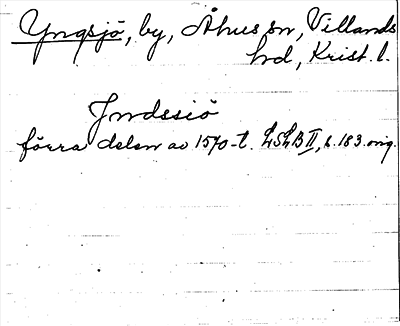 Yngsjö, by, Åhus sn, Villands
hd, Krist. l.
Jndssiö
förra delen av 1570-t. LSLB II, s. 183. orig.